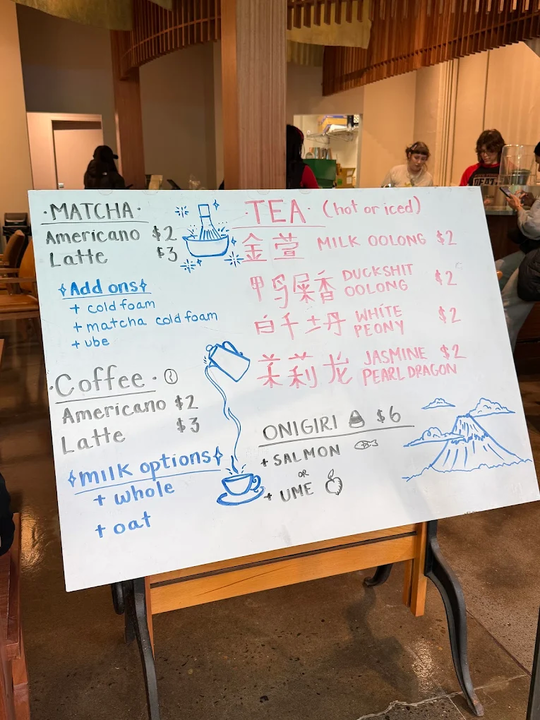 ·MATCHA·
Americano $2
Latte $3
Add ons
+ cold foam
+ matcha cold foam
+ ube
·Coffee·
Americano $2
Latte $3
milk options
+ whole
+ oat
TEA (hot or iced)
金萱 MILK OOLONG $2
鸭屎香 DUCKSHIT OOLONG $2
白牡丹 WHITE PEONY $2
茉莉龙 JASMINE PEARL DRAGON $2
ONIGIRI $6
+ SALMON
OR
+ UME